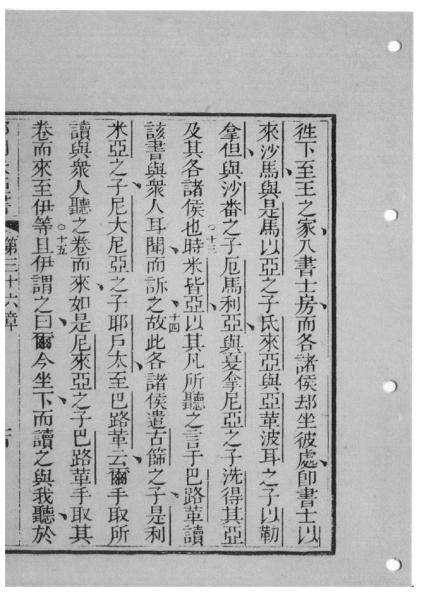 徃下至王之家入書士房而各諸侯却坐彼處卽書士以
來沙馬與是馬以亞之子氐來亞與亞革波耳之子以勒
拿但與沙番之子厄馬利亞與夏拿尼亞之子洗得其亞
及其各諸侯也十三時米皆亞以其凡所聽之言于巴路革讀
該書與衆人耳聞而訴之十四故此各諸侯遣古篩之子是利
米亞之子尼大尼亞之子耶戶太至巴路革云爾手取所
讀與衆人聽之卷而來如是尼來亞之子巴路革手取其
卷而來至伊等十五且伊謂之曰爾今坐下而讀之與我聽於
第三十六章